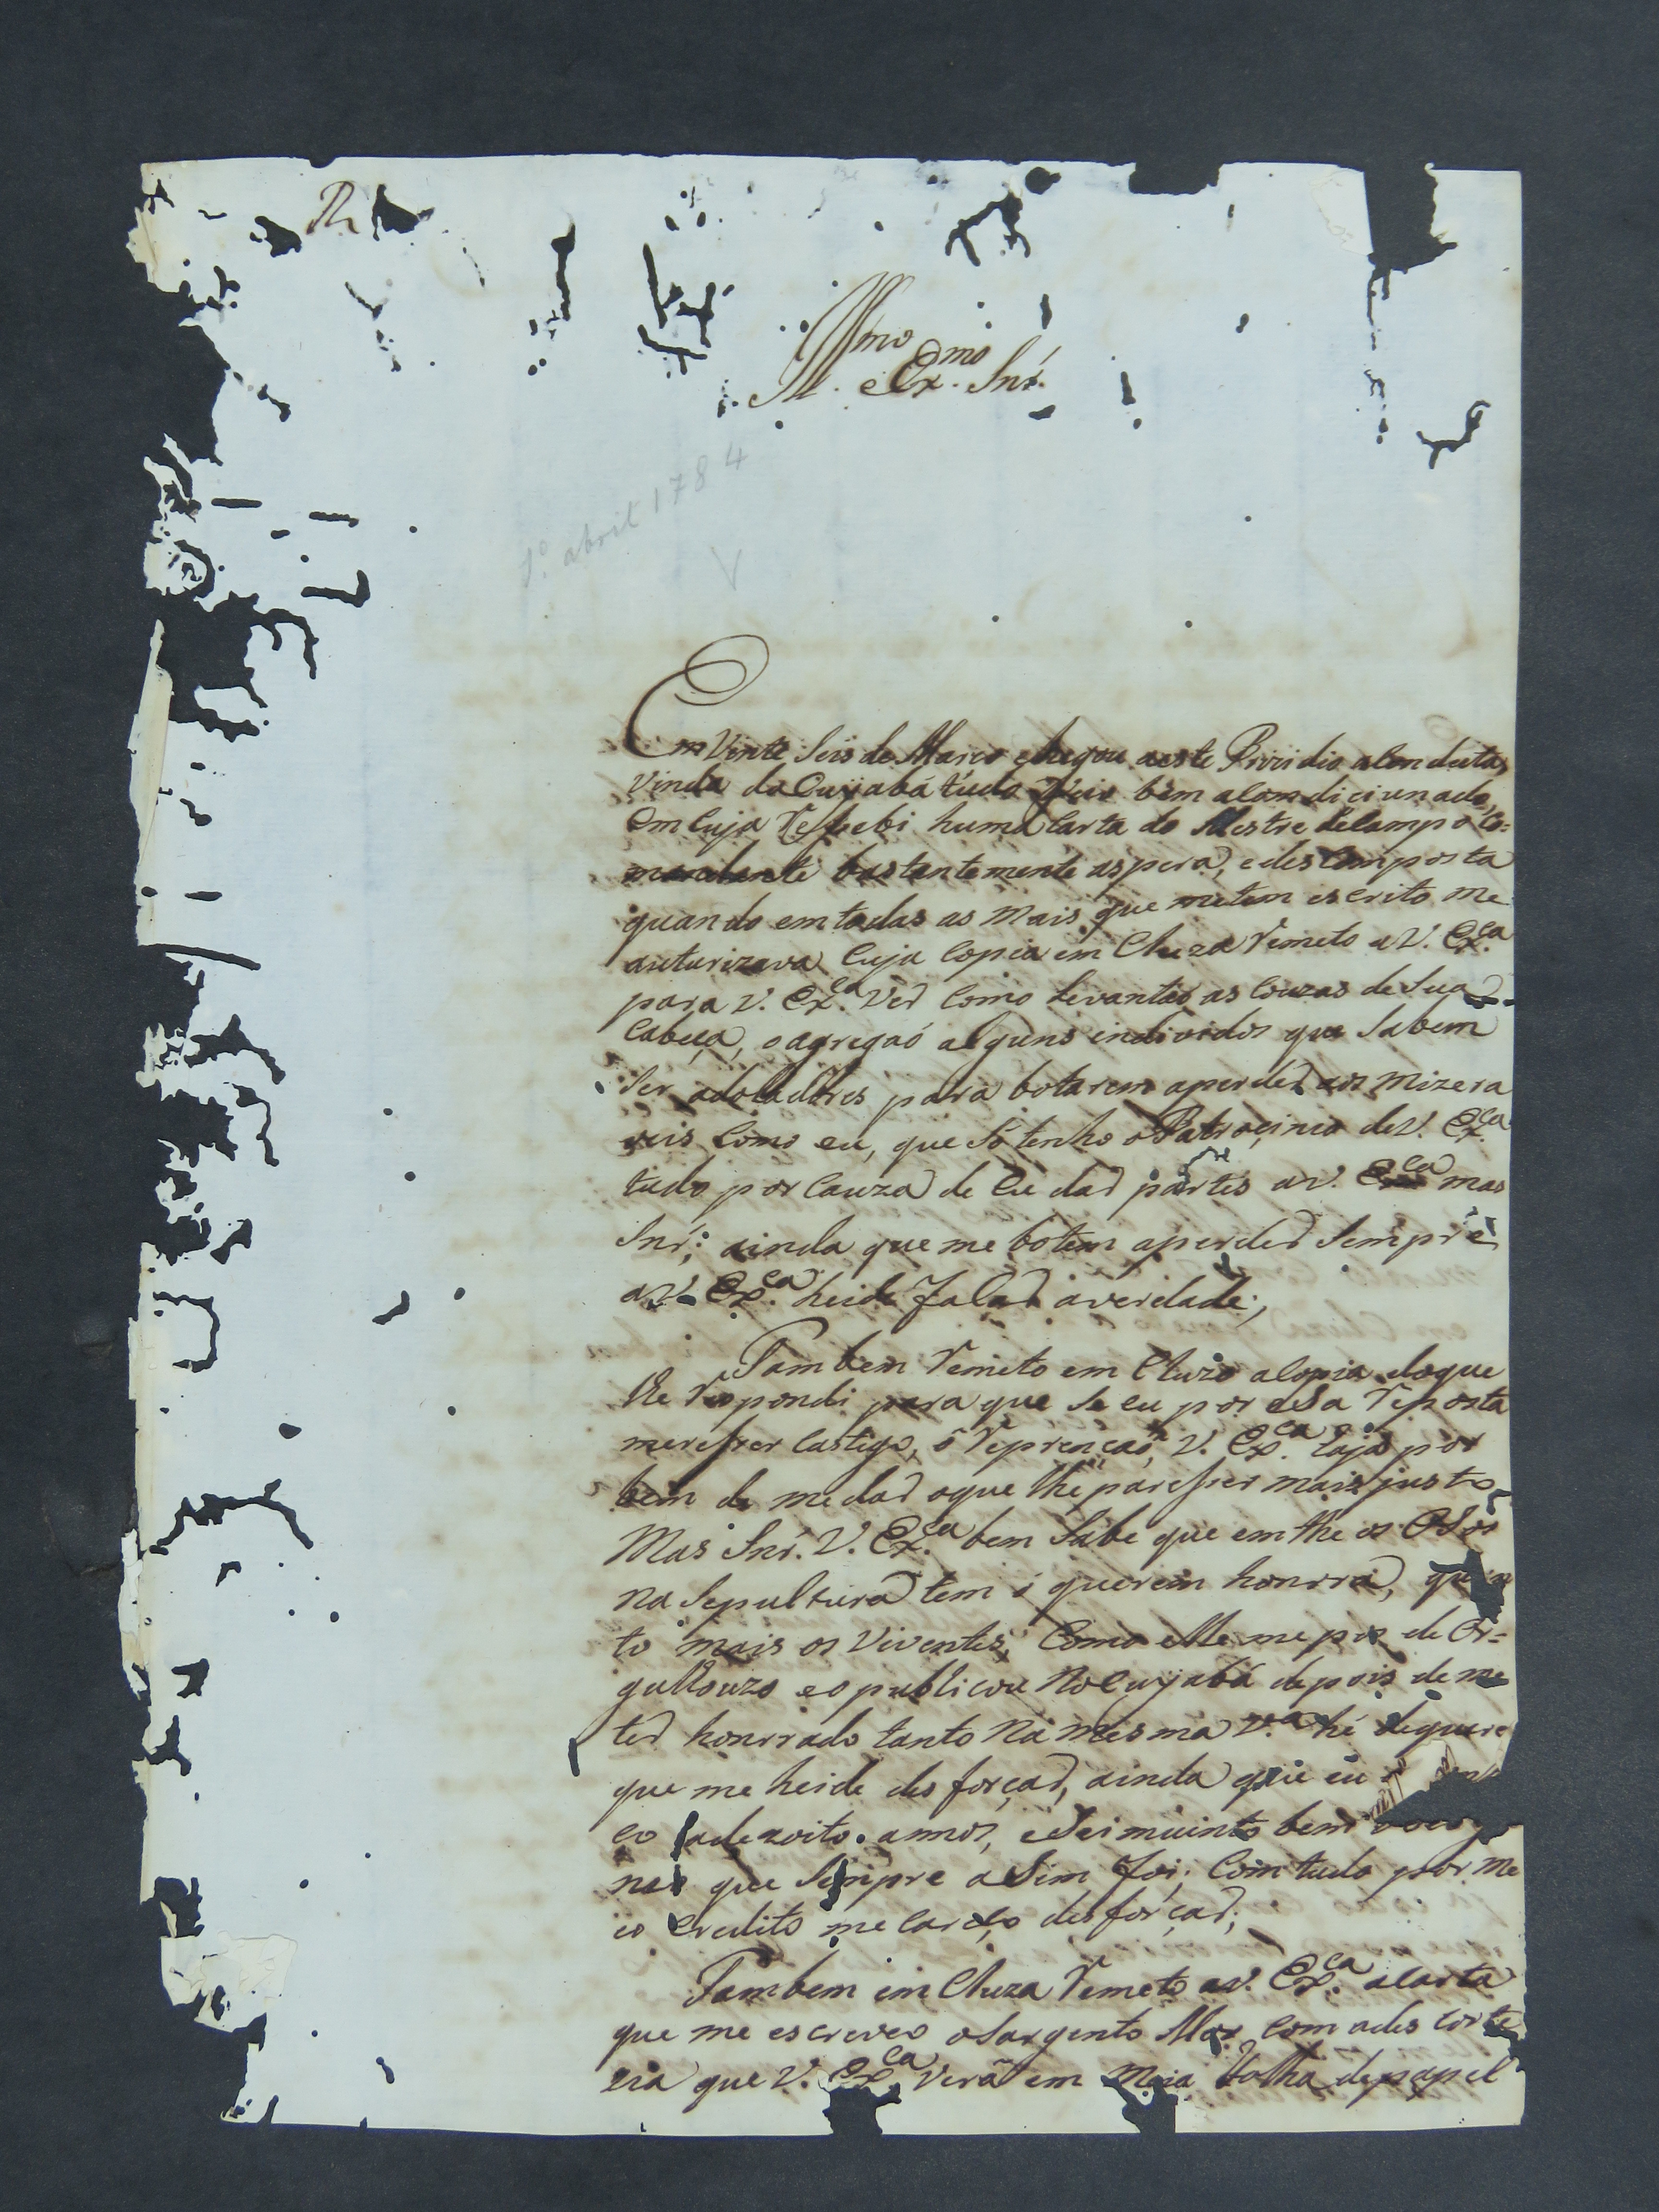 R
Ill.mo e Ex.mo Snr.
1º abril 1784
Em Vinte Seis de Marco chegou aeste Prizidio aConduta
Vinda do Cuyabá tudo bem acondiciunado,
em cuja Ressebi huma Carta do Mestre deCampo Co=
mandante bastantemente aspera, edesComposta
quando emtodas as mais que metem escrito me
auturizava Cuja Copia em Cluza Remeto aV. Ex.ca
para V. Ex.ca Ver Como Levantaõ as Couzas desua
Cabeça, e agregaõ alguns individos que Sabem
Ser adoladores para botarem aperder aos mizera
veis Como eu, que Só tenho oPatroçinio deV. Ex.ca
tudo por Cauza de Eu dar partes aV. Ex.ca mas
Snr; ainda que me botem aperder Sempre
aV. Ex.ca heide Falar averdade;
Tambem Remeto em Cluzo aCopia doque
lhe Respondi para que Se eu por eSa Reposta
meresser Castigo, ó Reprençaõ, V. Ex.ca Laja por
bem de medar oque lhe paresser mais justo
Mas Snr. V. Ex.ca bem Sabe que emthe os OSos
na Sepultura tem é querem honrra, quan
to mais os Viventes, Como elle me pos de Or=
gulhouzo eo publicou noCuyabá depois deme
ter honrrado tanto na mesma V.a hé
que me heide desforçar, ainda que eu
eo adezoito annos, eSei muinto bem
nes que Sempre aSim Foi; Comtudo por me
eo Credito me Careço desforçar;
Tambem em Cluza Remeto aV. Ex.ca aCarta
que me escreveo oSargento Mor Com ades corte
zia que V. Ex.ca Verá em Meia Folha depapel